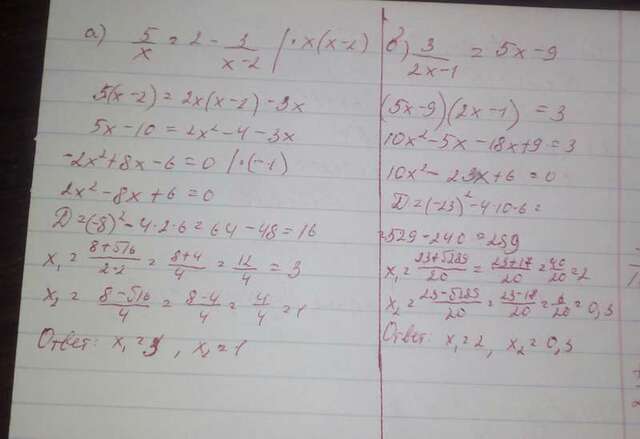 а) 5/x = 2 - 3/(x-2) | · x(x-2)
5(x-2) = 2x(x-2) - 3x
5x - 10 = 2x² - 4 - 3x
-2x² + 8x - 6 = 0 | · (-1)
2x² - 8x + 6 = 0
D = (-8)² - 4·2·6 = 64 - 48 = 16
x₁ = (8+√16)/(2·2) = (8+4)/4 = 12/4 = 3
x₂ = (8-√16)/4 = (8-4)/4 = 4/4 = 1
Ответ: x₁ = 3, x₂ = 1
б) 3/(2x-1) = 5x - 9
(5x-9)(2x-1) = 3
10x² - 5x - 18x + 9 = 3
10x² - 23x + 6 = 0
D = (-23)² - 4·10·6 =
= 529 - 240 = 289
x₁ = (23+√289)/20 = (23+17)/20 = 40/20 = 2
x₂ = (23-√289)/20 = (23-17)/20 = 6/20 = 0,3
Ответ: x₁ = 2, x₂ = 0,3